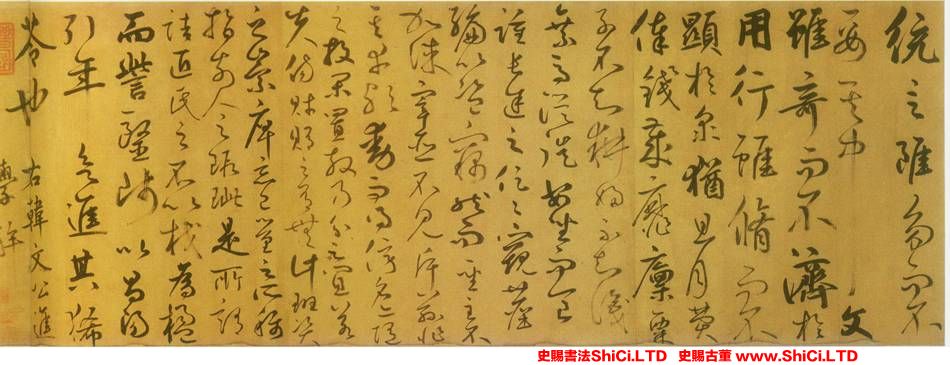 統言雖多而不
要其中 文
雖奇而不濟於
用行雖脩而不
顯於衆猶且月費
俸錢歲靡廩粟
子不知耕婦不知織
乘馬從徒安坐而食
踵常途之促促窺陳
編以盜竊然而聖主不
加誅宰臣不見斥茲非
其幸歟動而得謗名亦隨
之投閑置散乃分之宜若
夫商財賄之有無計班資
之崇庳忘己量之所稱
指前人之瑕疵是所謂
詰匠氏之不以杙為楹
而訾醫師以昌陽
引年欲進其豨
苓也
右韓文公進
學解
史賜書法ShiCi.LTD 史賜古董 www.ShiCi.LTD